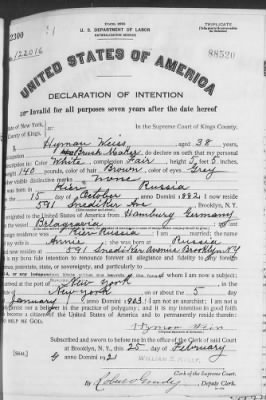 TRIPLICATE
U. S. DEPARTMENT OF LABOR
NATURALIZATION SERVICE
2200
No. 122016
88520
UNITED STATES OF AMERICA
DECLARATION OF INTENTION
Invalid for all purposes seven years after the date hereof
State of New York,
County of Kings,
In the Supreme Court of Kings County.
I, Hyman Weiss, aged 38 years,
occupation Brush Maker, do declare on oath that my personal
description is: Color White, complexion Fair, height 5 feet 5 inches,
weight 140 pounds, color of hair Brown, color of eyes Grey
other visible distinctive marks none
Kiev Russia
on the 15 day of October, anno Domini 1882; I now reside
at 591 Snediker Ave Brooklyn, N.Y.
I emigrated to the United States of America from Hamburg Germany
on the vessel
foreign residence was Kiev Russia; I am married; the name
of my wife is Annie; she was born at Russia
and now resides at 591 Snediker Avenue Brooklyn NY
It is my bona fide intention to renounce forever all allegiance and fidelity to any foreign
prince, potentate, state, or sovereignty, and particularly to
of whom I am now a subject;
I arrived at the port of New York, in the
State of New York, on or about the 5 day
of January, anno Domini 1903; I am not an anarchist; I am not a
polygamist nor a believer in the practice of polygamy; and it is my intention in good faith
to become a citizen of the United States of America and to permanently reside therein:
SO HELP ME GOD.
Subscribed and sworn to before me in the office of the Clerk of said Court
at Brooklyn, N. Y., this 25 day of February
anno Domini 1921
[SEAL.]
WILLIAM E. KELLY
Clerk of the Supreme Court.
By
Deputy Clerk.